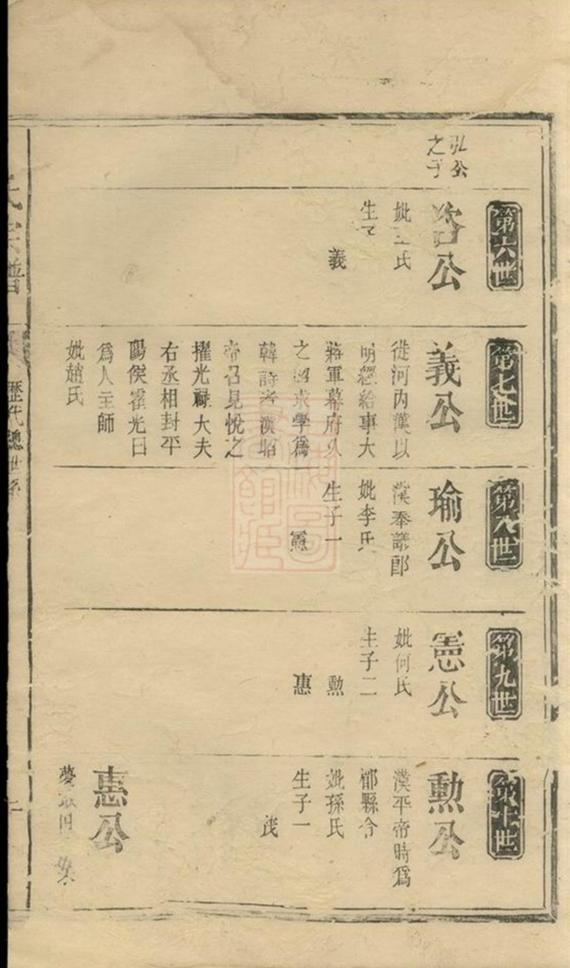 弘公
之子
第六世
公
妣王氏
生子
義
第七世
義公
從河內漢以
明經給事大
將軍幕府久
之詔求學爲
韓詩者漢昭
帝召見悅之
擢光祿大夫
右丞相封平
陽侯霍光曰
爲人主師
妣趙氏
第八世
瑜公
漢奉議郎
妣李氏
生子一
憲
第九世
憲公
妣何氏
生子二
勲
惠
第十世
勲公
漢平帝時爲
縣令
妣孫氏
生子一
茂
惠公
氏宗譜
歷代總世系